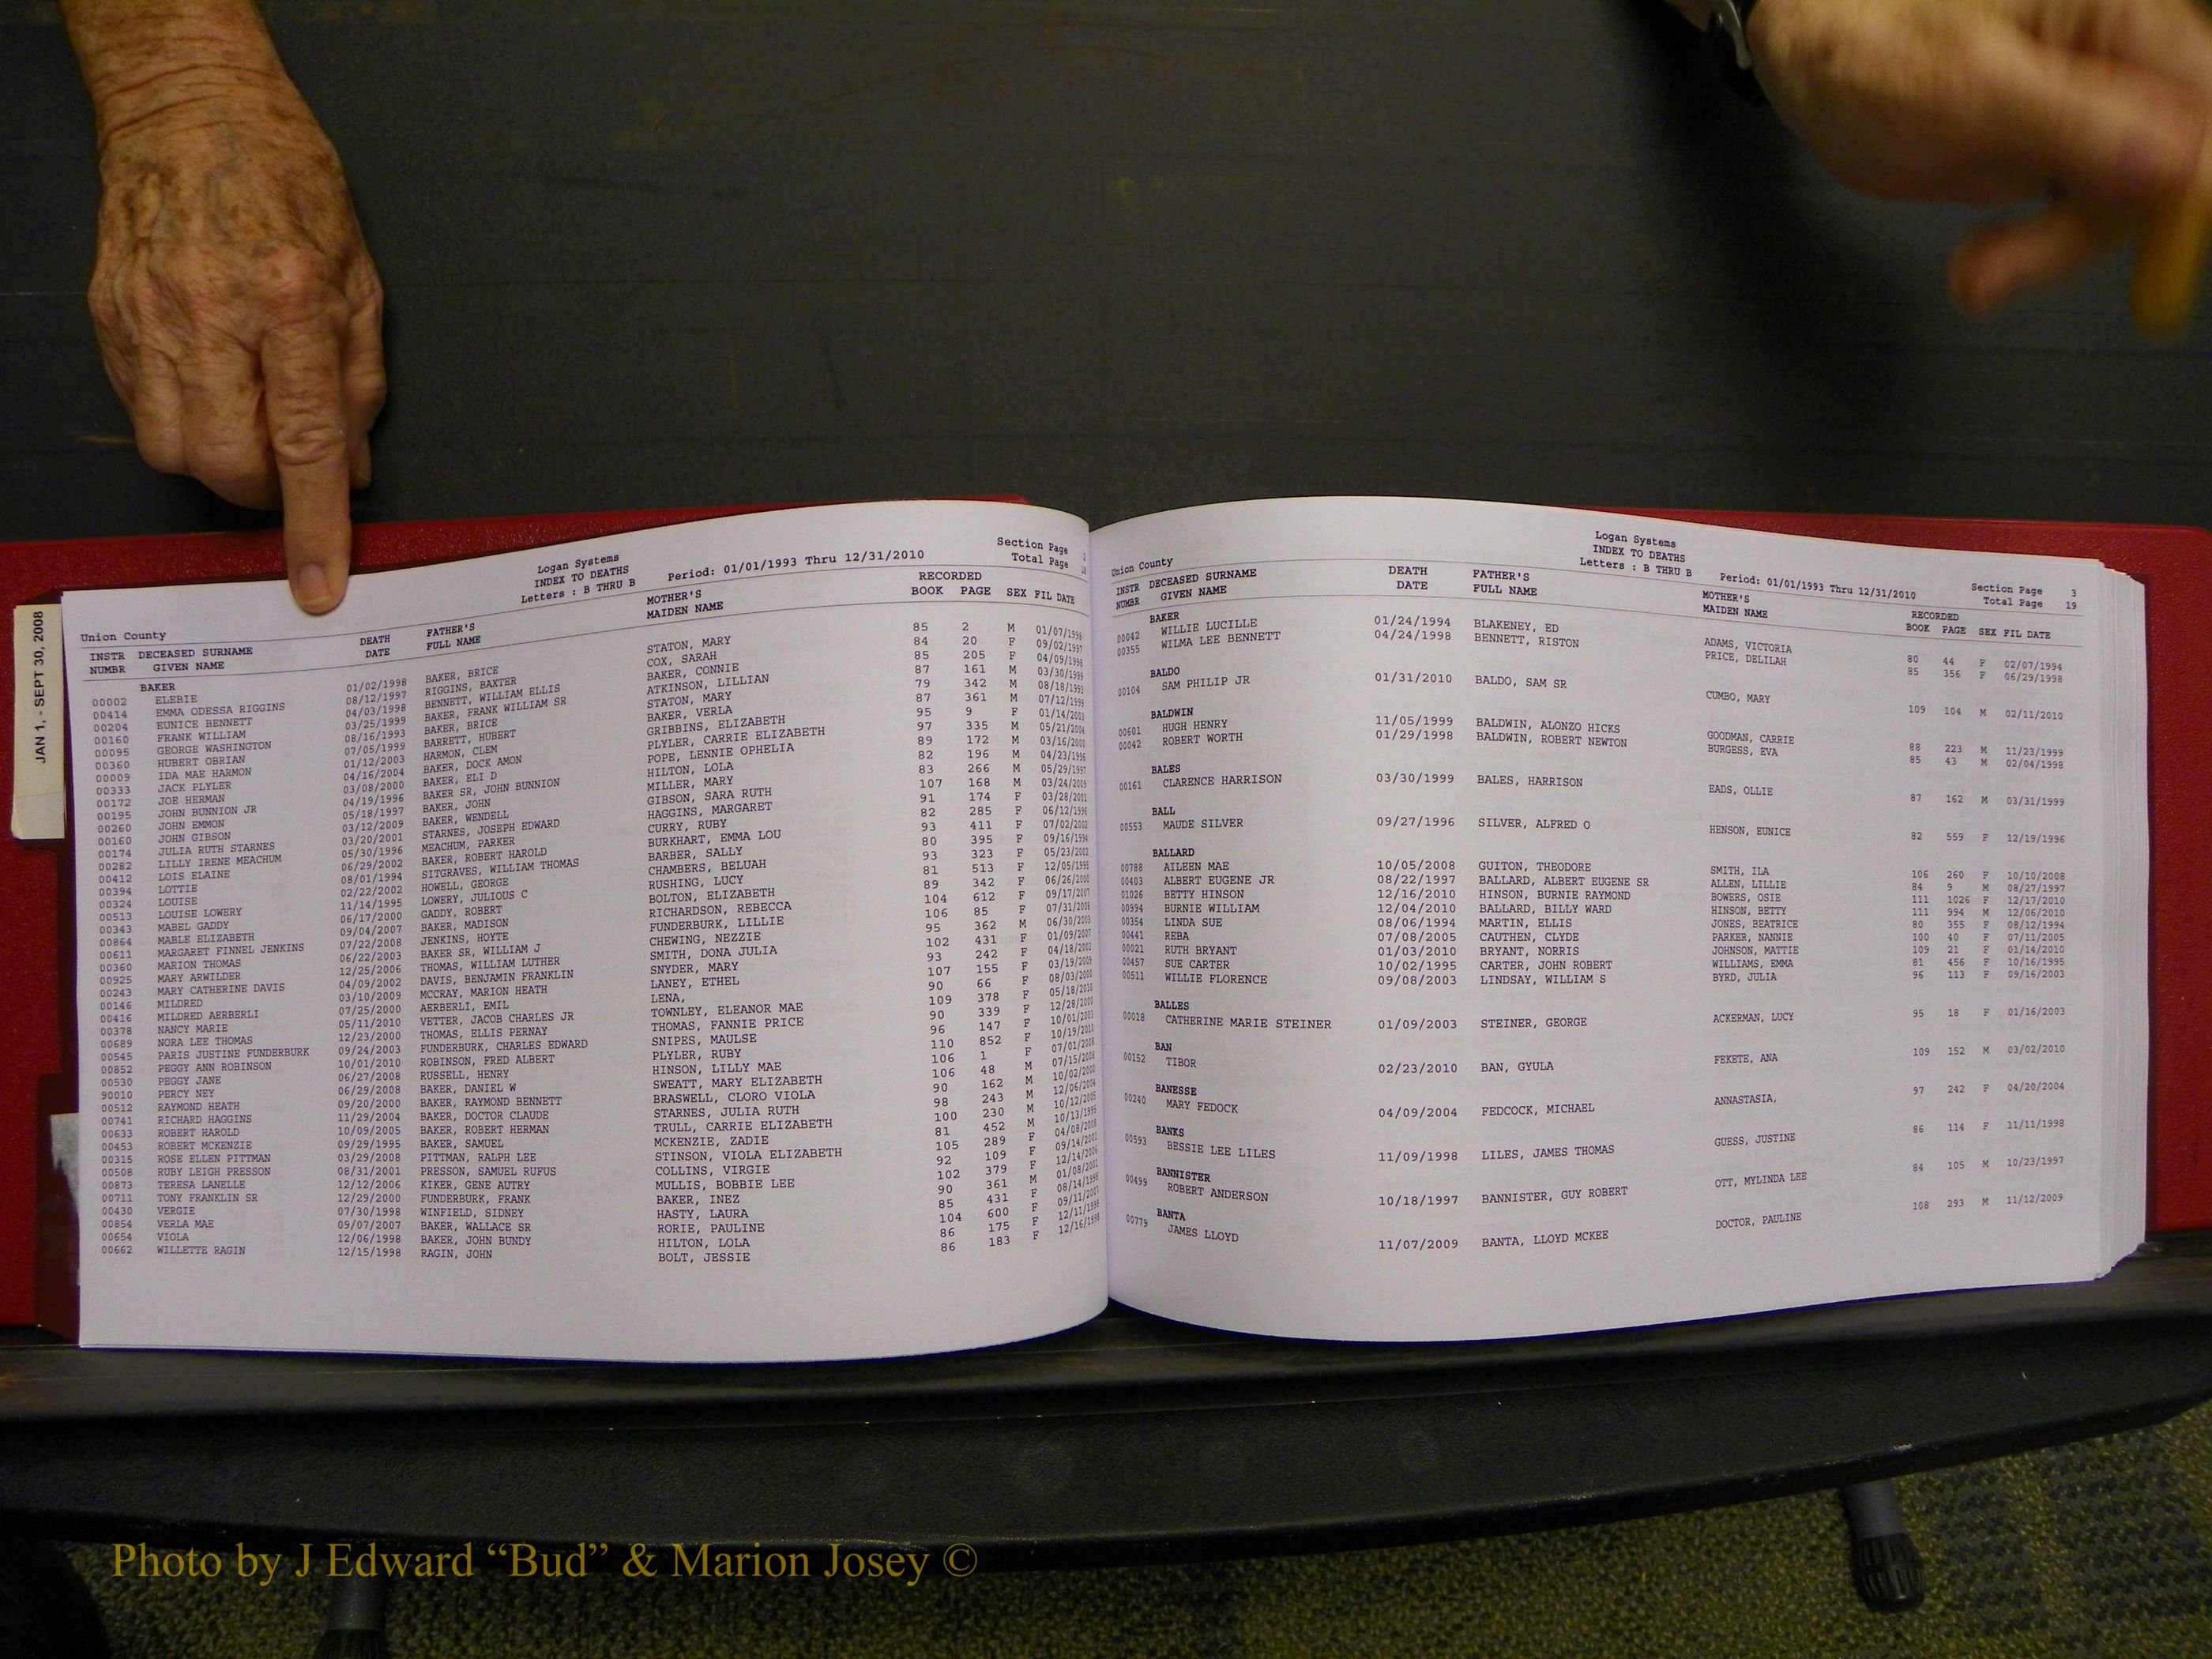 JAN 1, - SEPT 30, 2008
Logan Systems
INDEX TO DEATHS
Letters : B THRU B Period: 01/01/1993 Thru 12/31/2010
Section Page
Total Page
Union County
INSTR DECEASED SURNAME DEATH FATHER'S MOTHER'S RECORDED
NUMBR GIVEN NAME DATE FULL NAME MAIDEN NAME BOOK PAGE SEX FIL DATE
BAKER
00002 ELEBIE 01/02/1998 BAKER, BRICE STATON, MARY 85 2 M 01/07/1998
00414 EMMA ODESSA RIGGINS 08/12/1997 RIGGINS, BAXTER COX, SARAH 84 20 F 09/02/1997
00204 EUNICE BENNETT 04/03/1998 BENNETT, WILLIAM ELLIS BAKER, CONNIE 85 205 F 04/09/1998
00160 FRANK WILLIAM 03/25/1999 BAKER, FRANK WILLIAM SR ATKINSON, LILLIAN 87 161 M 03/30/1999
00095 GEORGE WASHINGTON 08/16/1993 BAKER, BRICE STATON, MARY 79 342 M 08/18/1993
00360 HUBERT OBRIAN 07/05/1999 BARRETT, HUBERT BAKER, VERLA 87 361 M 07/12/1999
00009 IDA MAE HARMON 01/12/2003 HARMON, CLEM GRIBBINS, ELIZABETH 95 9 F 01/14/2003
00333 JACK PLYLER 04/16/2004 BAKER, DOCK AMON PLYLER, CARRIE ELIZABETH 97 335 M 05/21/2004
00172 JOE HERMAN 03/08/2000 BAKER, ELI D POPE, LENNIE OPHELIA 89 172 M 03/16/2000
00195 JOHN BUNNION JR 04/19/1996 BAKER SR, JOHN BUNNION HILTON, LOLA 82 196 M 04/23/1996
00260 JOHN EMMON 05/18/1997 BAKER, JOHN MILLER, MARY 83 266 M 05/29/1997
00160 JOHN GIBSON 03/12/2009 BAKER, WENDELL GIBSON, SARA RUTH 107 168 M 03/24/2009
00174 JULIA RUTH STARNES 03/20/2001 STARNES, JOSEPH EDWARD HAGGINS, MARGARET 91 174 F 03/28/2001
00282 LILLY IRENE MEACHUM 05/30/1996 MEACHUM, PARKER CURRY, RUBY 82 285 F 06/12/1996
00412 LOIS ELAINE 06/29/2002 BAKER, ROBERT HAROLD BURKHART, EMMA LOU 93 411 F 07/02/2002
00394 LOTTIE 08/01/1994 SITGRAVES, WILLIAM THOMAS BARBER, SALLY 80 395 F 09/16/1994
00324 LOUISE 02/22/2002 HOWELL, GEORGE CHAMBERS, BELUAH 93 323 F 05/23/2002
00513 LOUISE LOWERY 11/14/1995 LOWERY, JULIOUS C RUSHING, LUCY 81 513 F 12/05/1995
00343 MABEL GADDY 06/17/2000 GADDY, ROBERT BOLTON, ELIZABETH 89 342 F 06/26/2000
00864 MABLE ELIZABETH 09/04/2007 BAKER, MADISON RICHARDSON, REBECCA 104 612 F 09/17/2007
00611 MARGARET FINNEL JENKINS 07/22/2008 JENKINS, HOYTE FUNDERBURK, LILLIE 106 85 F 07/31/2008
00360 MARION THOMAS 06/22/2003 BAKER SR, WILLIAM J CHEWING, NEZZIE 95 362 M 06/30/2003
00925 MARY ARWILDER 12/25/2006 THOMAS, WILLIAM LUTHER SMITH, DONA JULIA 102 431 F 01/09/2007
00243 MARY CATHERINE DAVIS 04/09/2002 DAVIS, BENJAMIN FRANKLIN SNYDER, MARY 93 242 F 04/18/2002
00146 MILDRED 03/10/2009 MCCRAY, MARION HEATH LANEY, ETHEL 107 155 F 03/19/2009
00416 MILDRED AERBERLI 07/25/2000 AERBERLI, EMIL LENA, 90 66 F 08/03/2000
00378 NANCY MARIE 05/11/2010 VETTER, JACOB CHARLES JR TOWNLEY, ELEANOR MAE 109 378 F 05/18/2010
00689 NORA LEE THOMAS 12/23/2000 THOMAS, ELLIS PERNAY THOMAS, FANNIE PRICE 90 339 F 12/28/2000
00545 PARIS JUSTINE FUNDERBURK 09/24/2003 FUNDERBURK, CHARLES EDWARD SNIPES, MAULSE 96 147 F 10/01/2003
00852 PEGGY ANN ROBINSON 10/01/2010 ROBINSON, FRED ALBERT PLYLER, RUBY 110 852 F 10/19/2010
00530 PEGGY JANE 06/27/2008 RUSSELL, HENRY HINSON, LILLY MAE 106 1 F 07/01/2008
90010 PERCY NEY 06/29/2008 BAKER, DANIEL W SWEATT, MARY ELIZABETH 106 48 M 07/15/2008
00512 RAYMOND HEATH 09/20/2000 BAKER, RAYMOND BENNETT BRASWELL, CLORO VIOLA 90 162 M 10/02/2000
00741 RICHARD HAGGINS 11/29/2004 BAKER, DOCTOR CLAUDE STARNES, JULIA RUTH 98 243 M 12/06/2004
00633 ROBERT HAROLD 10/09/2005 BAKER, ROBERT HERMAN TRULL, CARRIE ELIZABETH 100 230 M 10/12/2005
00453 ROBERT MCKENZIE 09/29/1995 BAKER, SAMUEL MCKENZIE, ZADIE 81 452 M 10/13/1995
00315 ROSE ELLEN PITTMAN 03/29/2008 PITTMAN, RALPH LEE STINSON, VIOLA ELIZABETH 105 289 F 04/08/2008
00508 RUBY LEIGH PRESSON 08/31/2001 PRESSON, SAMUEL RUFUS COLLINS, VIRGIE 92 109 F 09/14/2001
00873 TERESA LANELLE 12/12/2006 KIKER, GENE AUTRY MULLIS, BOBBIE LEE 102 379 F 12/14/2006
00711 TONY FRANKLIN SR 12/29/2000 FUNDERBURK, FRANK BAKER, INEZ 90 361 M 01/08/2001
00430 VERGIE 07/30/1998 WINFIELD, SIDNEY HASTY, LAURA 85 431 F 08/14/1998
00854 VERLA MAE 09/07/2007 BAKER, WALLACE SR RORIE, PAULINE 104 600 F 09/11/2007
00654 VIOLA 12/06/1998 BAKER, JOHN BUNDY HILTON, LOLA 86 175 F 12/11/1998
00662 WILLETTE RAGIN 12/15/1998 RAGIN, JOHN BOLT, JESSIE 86 183 F 12/16/1998
Logan Systems
INDEX TO DEATHS
Letters : B THRU B Period: 01/01/1993 Thru 12/31/2010
Section Page 3
Total Page 19
Union County
INSTR DECEASED SURNAME DEATH FATHER'S MOTHER'S RECORDED
NUMBR GIVEN NAME DATE FULL NAME MAIDEN NAME BOOK PAGE SEX FIL DATE
BAKER
00042 WILLIE LUCILLE 01/24/1994 BLAKENEY, ED ADAMS, VICTORIA 80 44 F 02/07/1994
00355 WILMA LEE BENNETT 04/24/1998 BENNETT, RISTON PRICE, DELILAH 85 356 F 06/29/1998
BALDO
00104 SAM PHILIP JR 01/31/2010 BALDO, SAM SR CUMBO, MARY 109 104 M 02/11/2010
BALDWIN
00601 HUGH HENRY 11/05/1999 BALDWIN, ALONZO HICKS GOODMAN, CARRIE 88 223 M 11/23/1999
00042 ROBERT WORTH 01/29/1998 BALDWIN, ROBERT NEWTON BURGESS, EVA 85 43 M 02/04/1998
BALES
00161 CLARENCE HARRISON 03/30/1999 BALES, HARRISON EADS, OLLIE 87 162 M 03/31/1999
BALL
00553 MAUDE SILVER 09/27/1996 SILVER, ALFRED O HENSON, EUNICE 82 559 F 12/19/1996
BALLARD
00788 AILEEN MAE 10/05/2008 GUITON, THEODORE SMITH, ILA 106 260 F 10/10/2008
00403 ALBERT EUGENE JR 08/22/1997 BALLARD, ALBERT EUGENE SR ALLEN, LILLIE 84 9 M 08/27/1997
01026 BETTY HINSON 12/16/2010 HINSON, BURNIE RAYMOND BOWERS, OSIE 111 1026 F 12/17/2010
00994 BURNIE WILLIAM 12/04/2010 BALLARD, BILLY WARD HINSON, BETTY 111 994 M 12/06/2010
00354 LINDA SUE 08/06/1994 MARTIN, ELLIS JONES, BEATRICE 80 355 F 08/12/1994
00441 REBA 07/08/2005 CAUTHEN, CLYDE PARKER, NANNIE 100 40 F 07/11/2005
00021 RUTH BRYANT 01/03/2010 BRYANT, NORRIS JOHNSON, MATTIE 109 21 F 01/14/2010
00457 SUE CARTER 10/02/1995 CARTER, JOHN ROBERT WILLIAMS, EMMA 81 456 F 10/16/1995
00511 WILLIE FLORENCE 09/08/2003 LINDSAY, WILLIAM S BYRD, JULIA 96 113 F 09/16/2003
BALLES
00018 CATHERINE MARIE STEINER 01/09/2003 STEINER, GEORGE ACKERMAN, LUCY 95 18 F 01/16/2003
BAN
00152 TIBOR 02/23/2010 BAN, GYULA FEKETE, ANA 109 152 M 03/02/2010
BANESSE
00240 MARY FEDOCK 04/09/2004 FEDCOCK, MICHAEL ANNASTASIA, 97 242 F 04/20/2004
BANKS
00593 BESSIE LEE LILES 11/09/1998 LILES, JAMES THOMAS GUESS, JUSTINE 86 114 F 11/11/1998
BANNISTER
00499 ROBERT ANDERSON 10/18/1997 BANNISTER, GUY ROBERT OTT, MYLINDA LEE 84 105 M 10/23/1997
BANTA
00779 JAMES LLOYD 11/07/2009 BANTA, LLOYD MCKEE DOCTOR, PAULINE 108 293 M 11/12/2009
Photo by J Edward “Bud” & Marion Josey ©